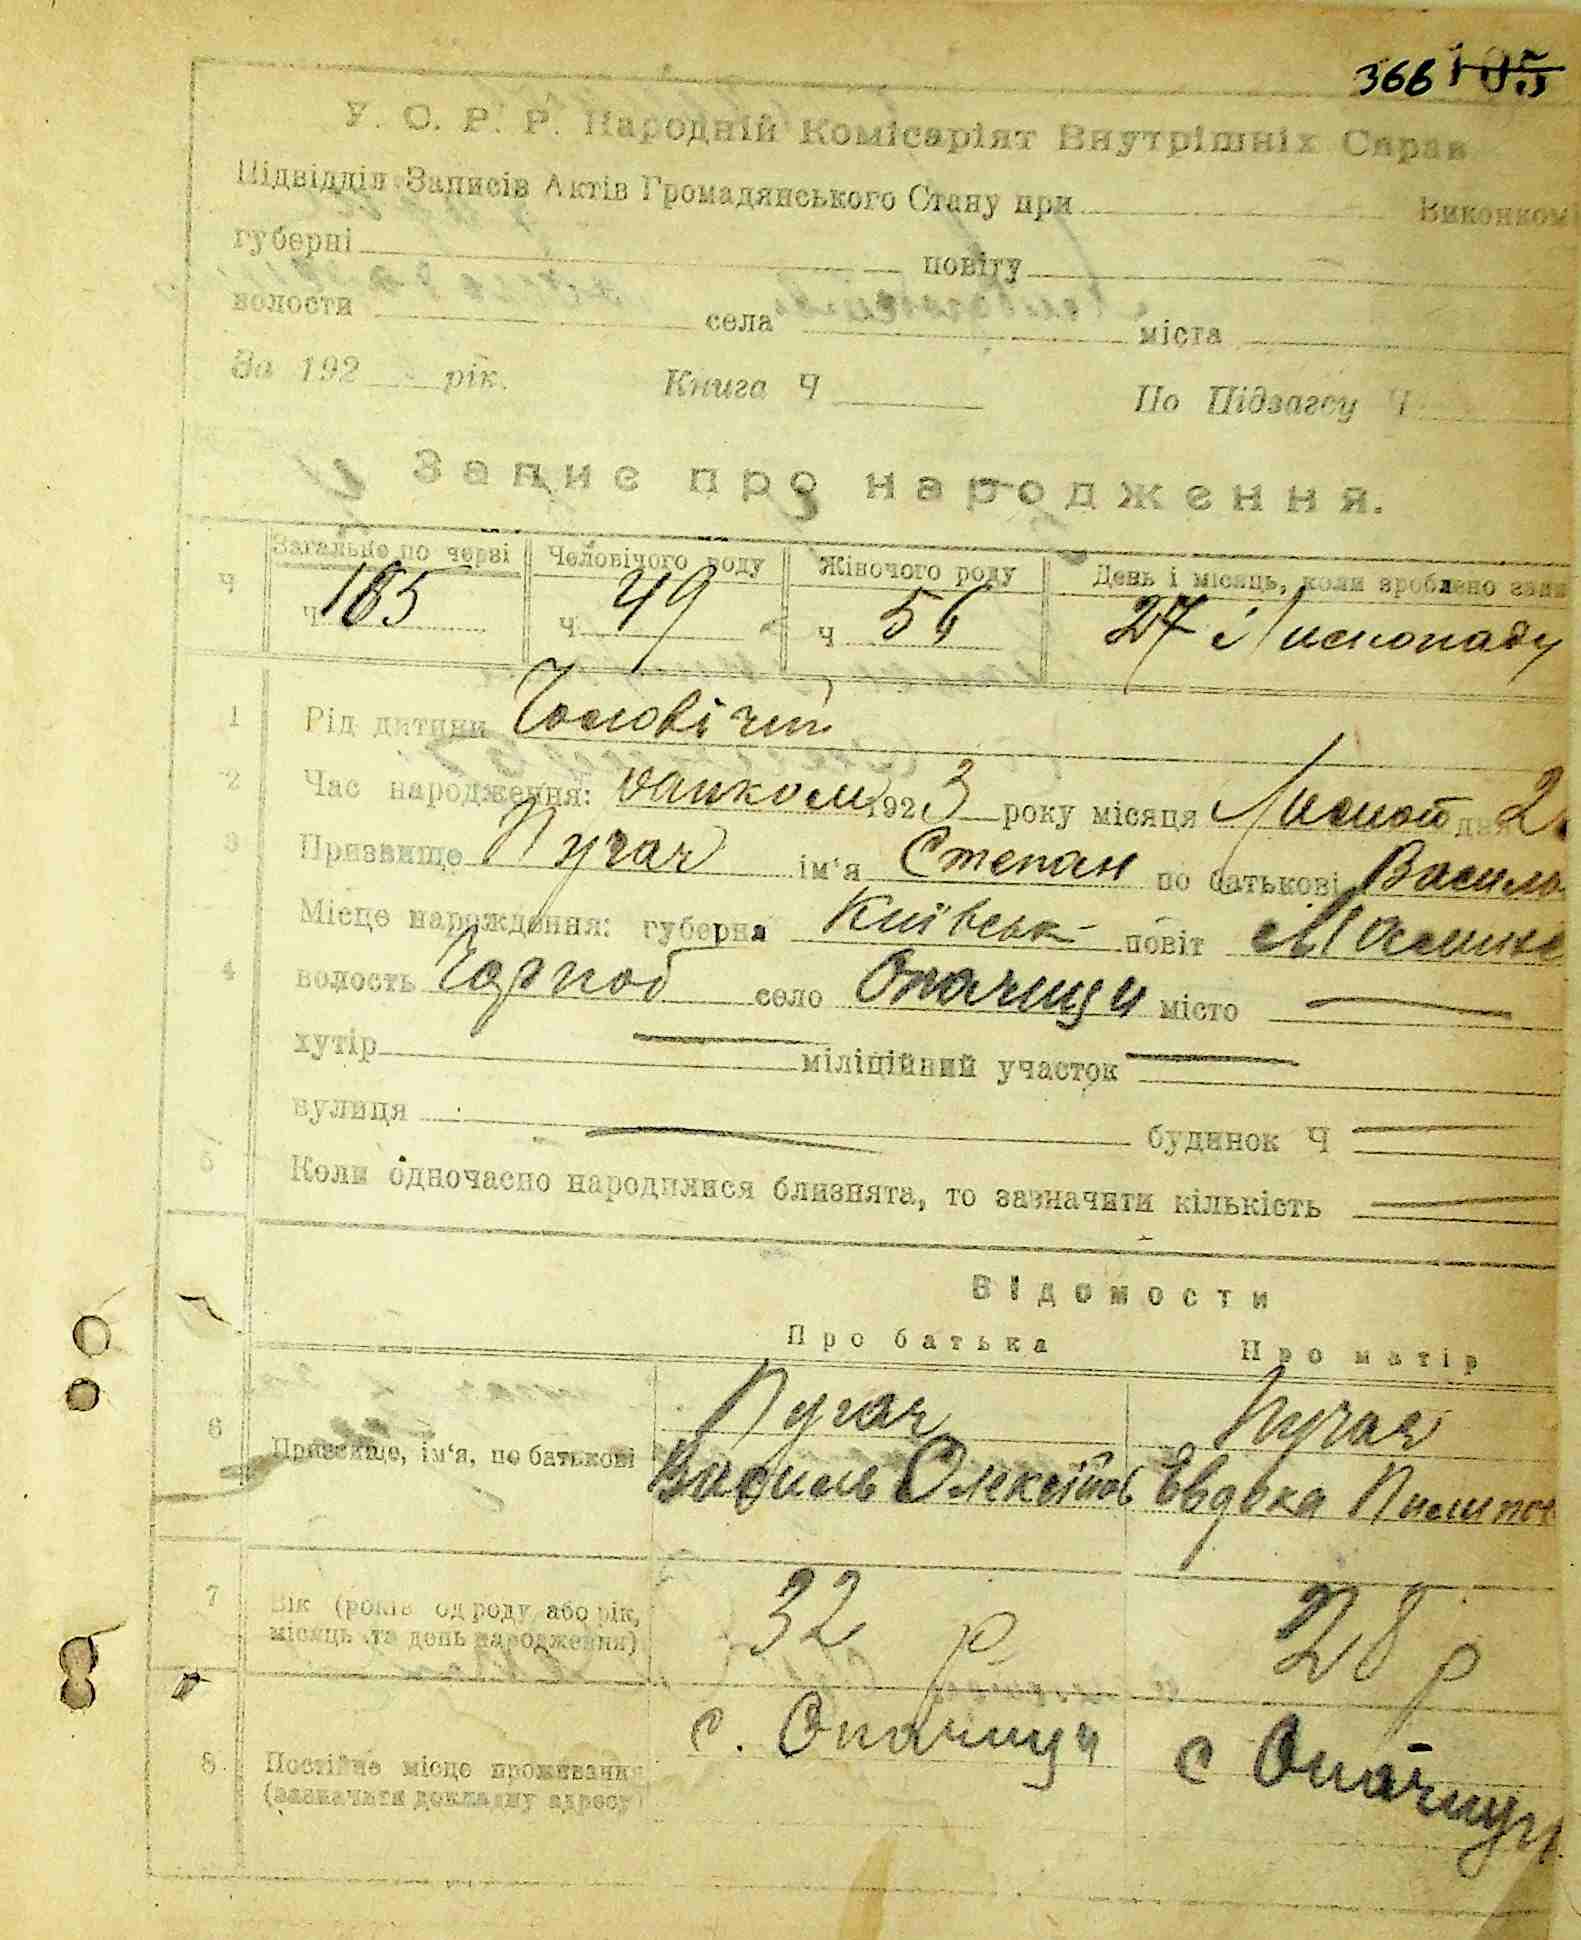 366 105
У. С. Р. Р. Народній Комісаріят Внутрішніх Справ
Підвідділ Записів Актів Громадянського Стану при Виконком
губерні повіту
волости села міста
За 192 рік. Книга Ч По Підзагсу Ч
Запис про народження.
Ч Загальне по черзі Человічого роду Жіночого роду День і місяць, коли зроблено запи
ч 105 ч 49 ч 56 27 Листопаду
1 Рід дитини Чоловічий
2 Час народження: ранком 1923 року місяця Листоп дня 2
3 Призвище Пугач ім'я Степан по батькові Василь
Місце народження: губерна Київськ повіт
4 волость Чорноб село Опачичи місто —
хутір — міліційний участок —
вулиця — будинок Ч —
5 Коли одночасно народилися близнята, то зазначити кількість —
Відомости
Про батька Про матір
6 Призвище, ім'я, по батькові Пугач Пугач
Василь Олексійов Евдоха Пилипов
7 Вік (років од роду або рік, місяць та день народження) 32 р 28 р
8. Постійне місце проживання (зазначити докладну адресу) с. Опачичи с Опачичи